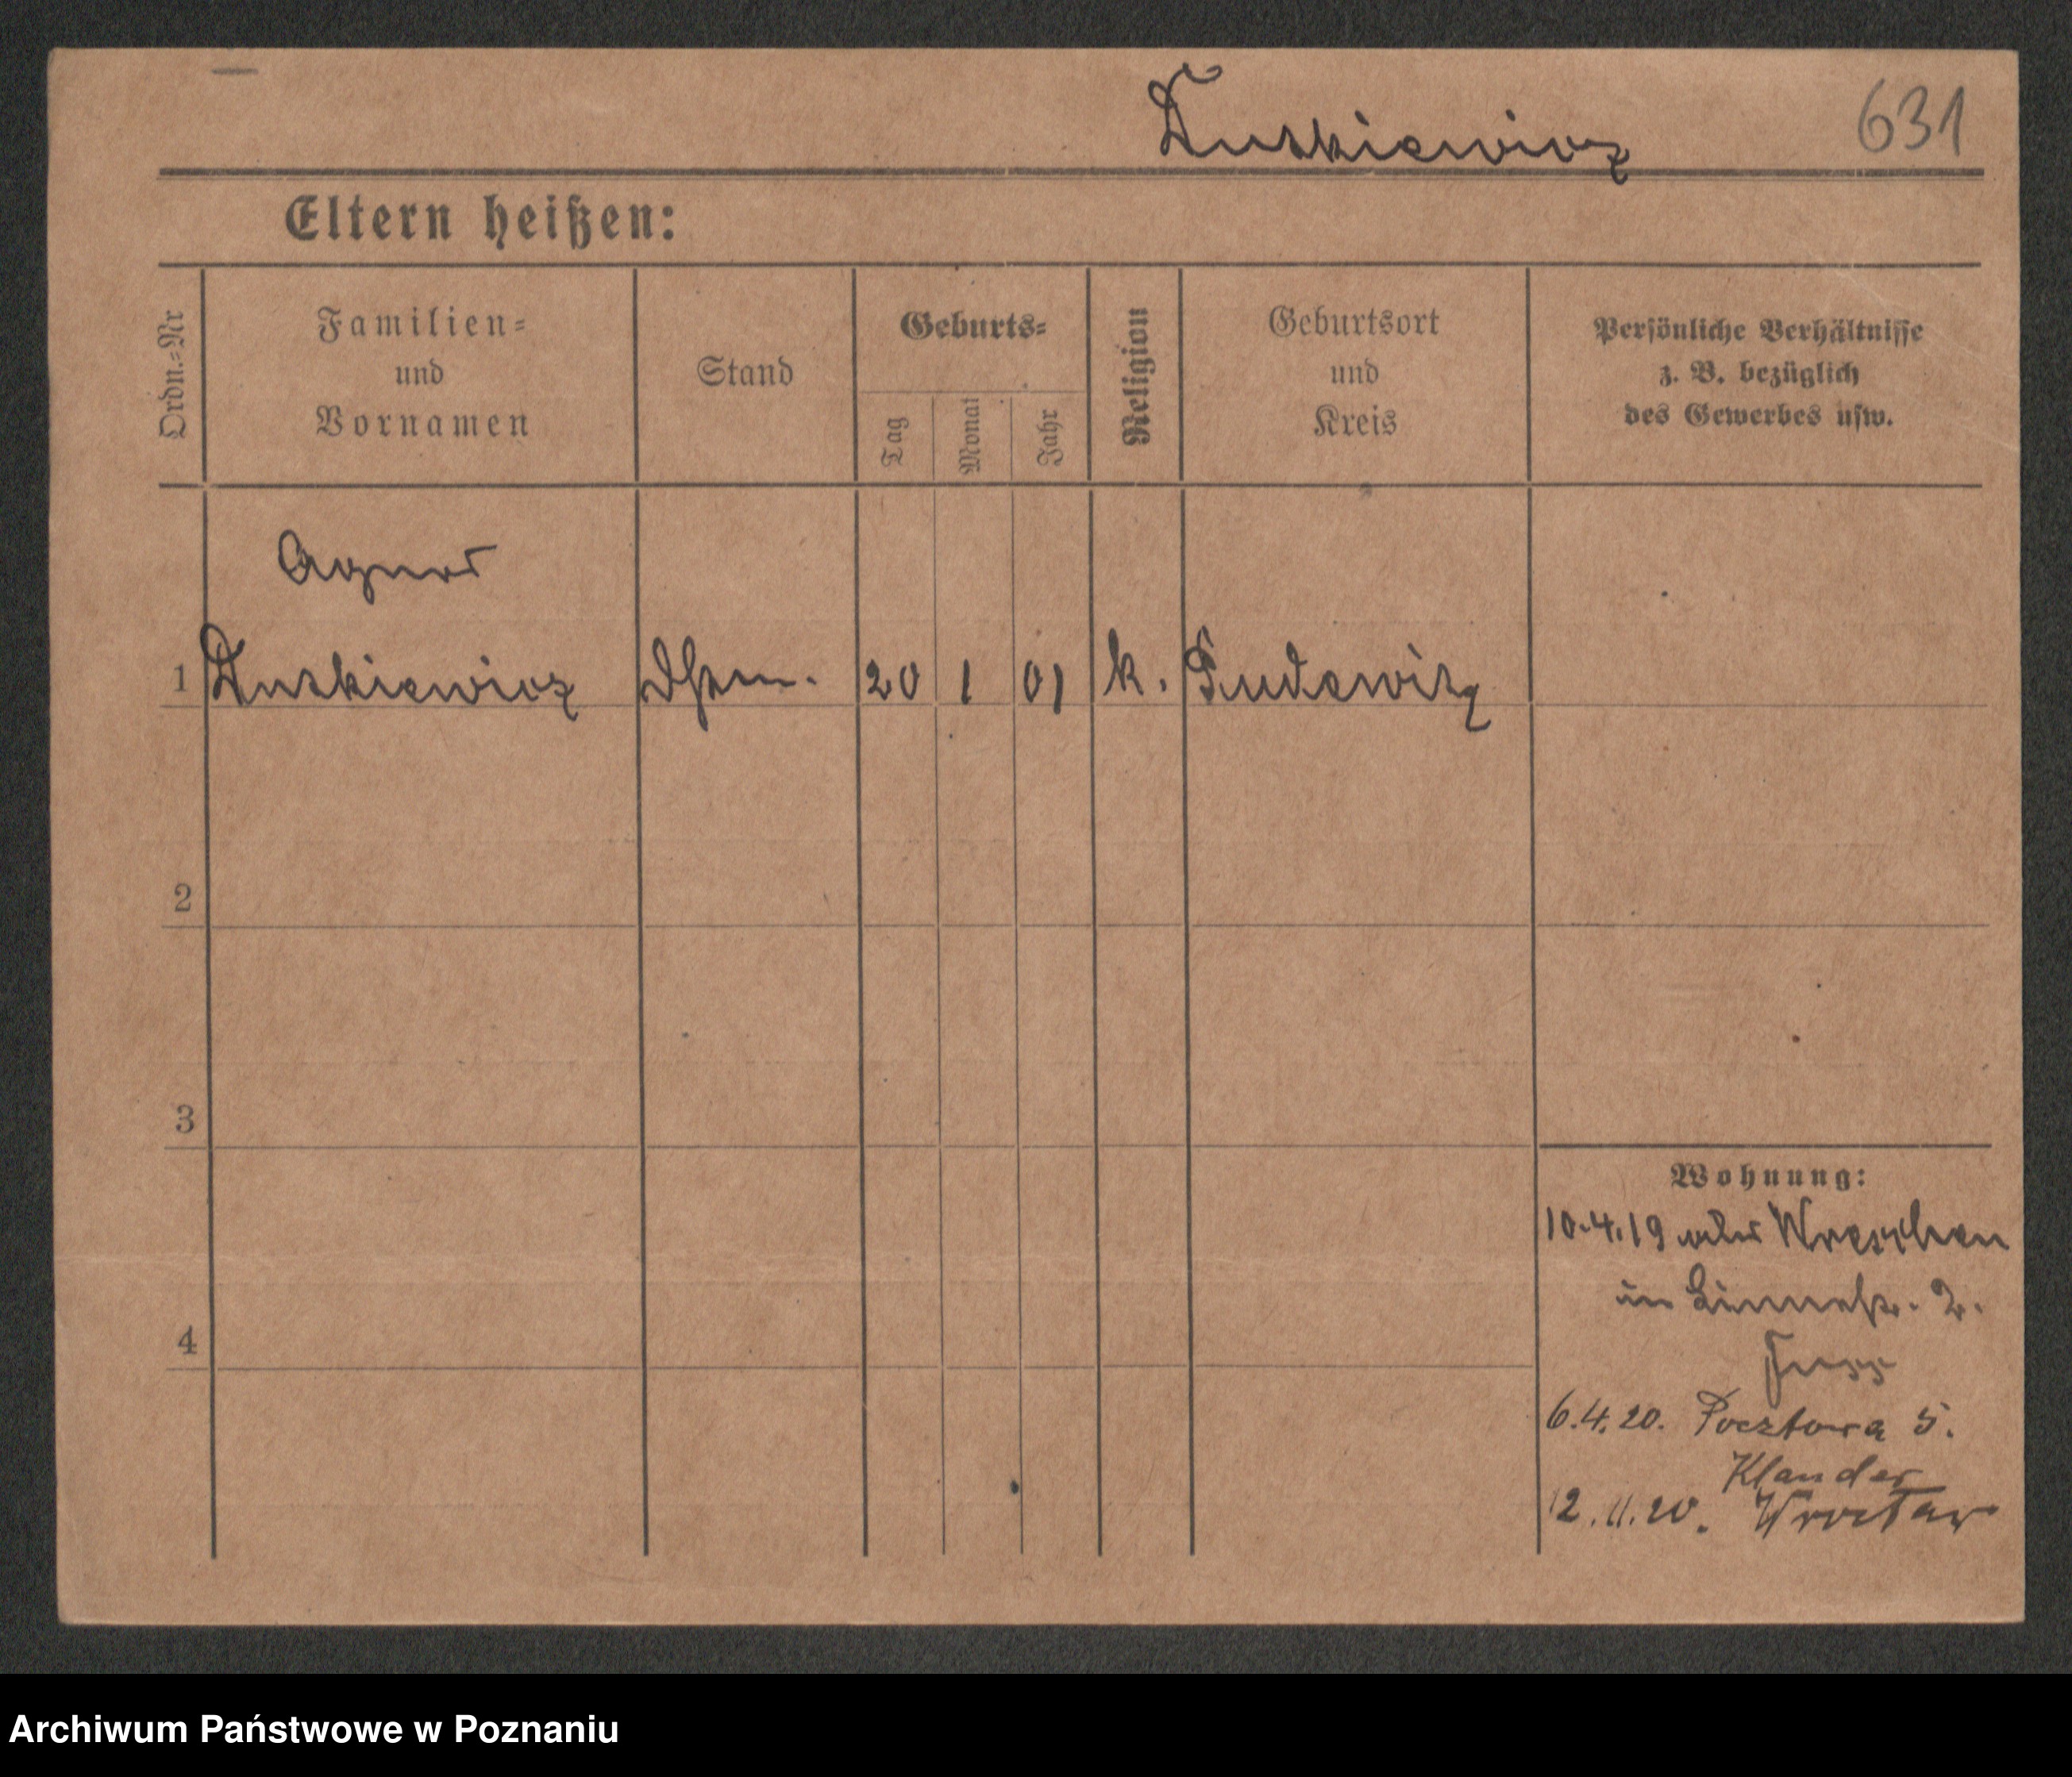 Duskiewicz 631
Eltern heißen:
Ordn.=Nr
Familien=
und
Vornamen
Stand
Geburts=
Tag
Monat
Jahr
Religion
Geburtsort
und
Kreis
Persönliche Verhältnisse
z. B. bezüglich
des Gewerbes usw.
Agnes
1 Duskiewicz 20 1 01 k. Pudewitz
2
3
4
Wohnung:
10.4.19 Wreschen
2.
6.4.20. Pocztowa 5.
Klander
12.11.20. Wrocław
Archiwum Państwowe w Poznaniu